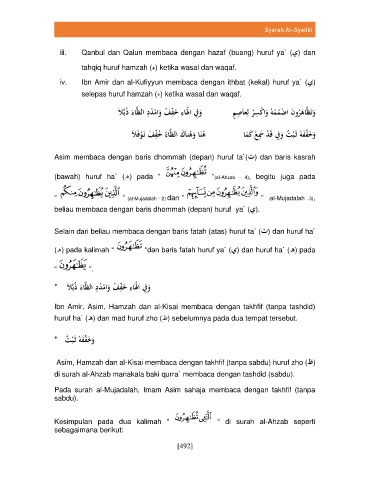 Syarah Al-Syatibi
iii. Qanbul dan Qalun membaca dengan hazaf (buang) huruf ya` (ي) dan
tahqiq huruf hamzah (ء) ketika wasal dan waqaf.
iv. Ibn Amir dan al-Kufiyyun membaca dengan ithbat (kekal) huruf ya` (ي)
selepas huruf hamzah (ء) ketika wasal dan waqaf.
وَتَظَاهَرُونَ اضْمُمْهُ وَاكْسِرْ لِعَاصِمٍ وَفِي الْهَاءِ خَفِّفْ وَامْدُدِ الظَّاءَ ذُبَّلَا
وَخَفَّفَهُ ثَبْتٌ وَفِي قَدْ سَمِعْ كَمَا هُنَا وَهُنَاكَ الظَّاءُ خُفِّفَ نَوْفَلَا
Asim membaca dengan baris dhommah (depan) huruf ta` (ت) dan baris kasrah
(bawah) huruf ha` (ه) pada " تُظَٰهِرُونَ مِنۡهُنَّ " (al-Ahzab : 4), begitu juga pada
" ٱلَّذِينَ يُظَٰهِرُونَ مِنكُم " (al-Mujadalah : 2) dan " وَٱلَّذِينَ يُظَٰهِرُونَ مِن نِّسَآئِهِمۡ " al-Mujadalah : 3),
beliau membaca dengan baris dhommah (depan) huruf ya` (ي).
Selain dari beliau membaca dengan baris fatah (atas) huruf ta` (ت) dan huruf ha`
(ه) pada kalimah " تَظَّهَّرُونَ " dan baris fatah huruf ya` (ي) dan huruf ha` (ه) pada
" يَظَّهَّرُونَ ".
* وَفِي الْهَاءِ خَفِّفْ وَامْدُدِ الظَّاءَ ذُبَّلَا
Ibn Amir, Asim, Hamzah dan al-Kisai membaca dengan takhfif (tanpa tashdid)
huruf ha` (ه) dan mad huruf zho (ظ) sebelumnya pada dua tempat tersebut.
* وَخَفَّفَهُ ثَبْتٌ
Asim, Hamzah dan al-Kisai membaca dengan takhfif (tanpa sabdu) huruf zho (ظ)
di surah al-Ahzab manakala baki qurra` membaca dengan tashdid (sabdu).
Pada surah al-Mujadalah, Imam Asim sahaja membaca dengan takhfif (tanpa
sabdu).
Kesimpulan pada dua kalimah " ٱلَّٰٓـِٔي تُظَٰهِرُونَ " di surah al-Ahzab seperti
sebagaimana berikut:
[492]